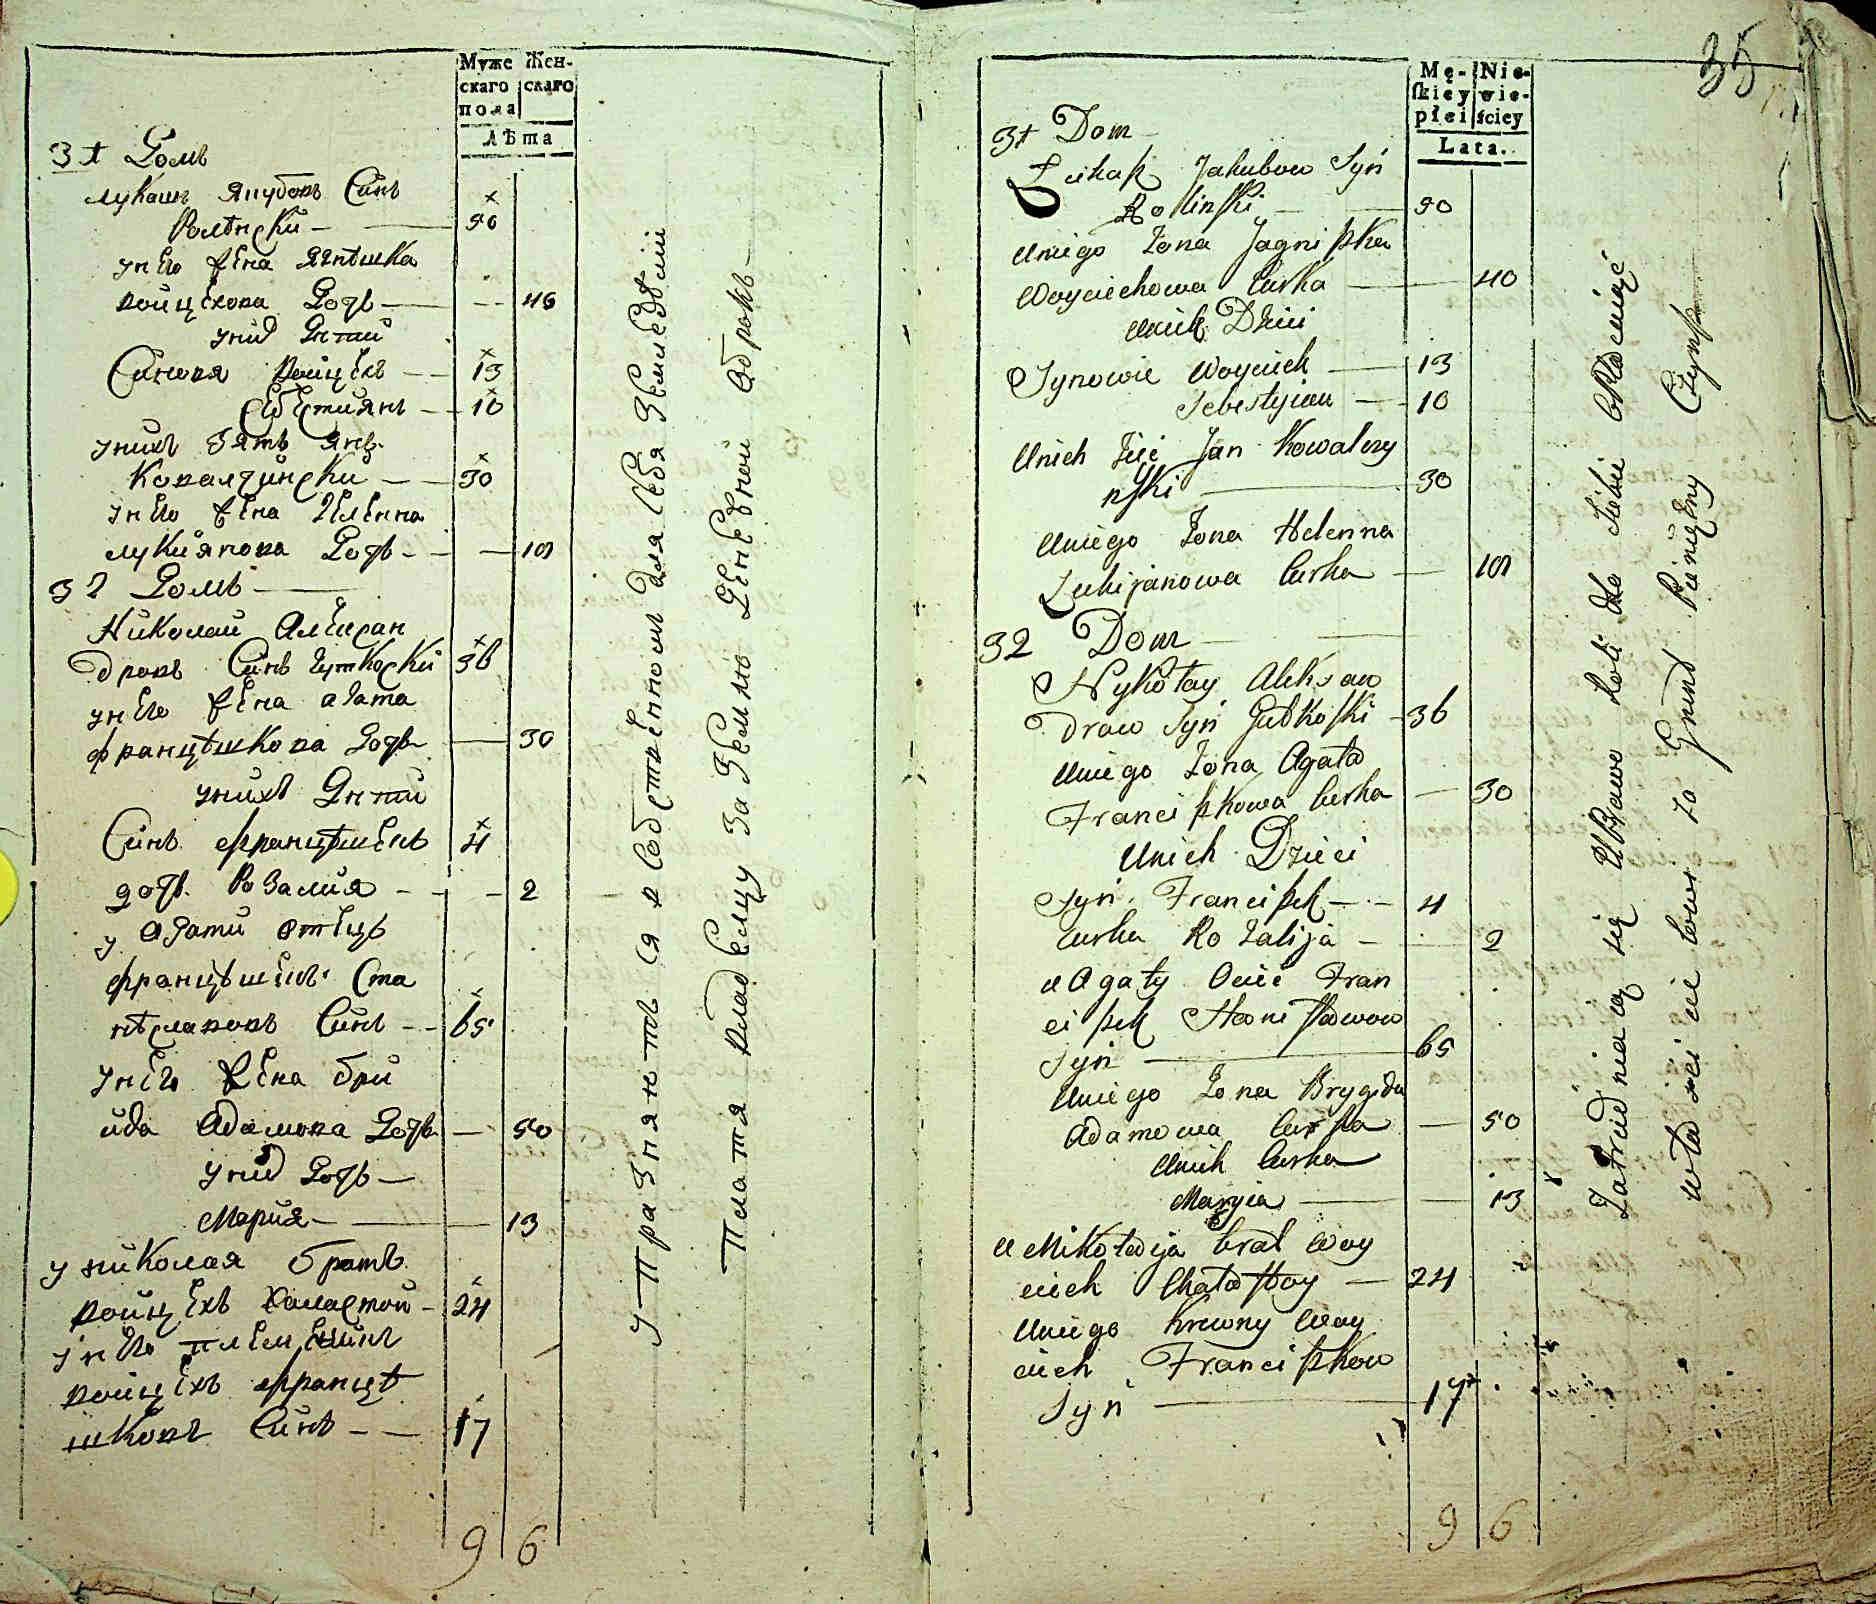 Муже Жен-
скаго скаго
пола
Лѣта
31 Домъ
Лукашъ Якубовъ Синъ
Ролѣнски 50
у него жена Ягнѣшка
войцехова Дочь 40
у нихъ Дѣти
Синовя войцехъ 13
Себестиянъ 10
у нихъ Зять янъ
Ковалчинскии 30
у него жена Геленна
лукиянова Дочь
32 Домъ
Николаи Алексан
дровъ Синъ Гутkоски 36
у него жена агата
францѣшкова Дочь 30
у нихъ Дѣти
Синъ францѣшекъ 4
дочь Розалия 2
у агати отецъ
францѣшекъ Ста
нѣславовъ Синъ 65
у него жена бри
ида Адамова Дочь 50
у нихъ Дочь
Мария 13
у николая братъ
войцехъ Халастои 24
у него племеникъ
войцехъ францѣ
шковъ Синъ 17
9 6
Упразняются в собственномъ для себя земледелии
Платя владелцу за землю денежнои аброкъ
35
Mę- Nie-
skiey wie-
płci ściey
Lata.
31 Dom
Łukasz Jakubow Syń
Rolinski 50
Uniego Żona Jagniszka
Woyciechowa Curka 40
Unich Dzieci
Synowie Woyciech 13
Sebestyian 10
Unich Zięć Jan Kowalczy
nski 30
Uniego Żona Helenna
Łukijanowa Curka
32 Dom
Nykołay Aleksan
drow Syń Gutkoski 36
Uniego Żona Agata
Franciszkowa Curka 30
Unich Dzieci
Syń Franciszek 4
Curka Rozalija 2
u Agaty Ociec Fran
ciszek Stanisławow
Syń 65
Uniego Żona Brygida
Adamowa Curka 50
Unich Curka
Maryia 13
u Mikołaija brat Woy
ciech Chałastoy 24
Uniego krewny Woy
ciech Franciszkow
Syń 17
9 6
Zatrudniaią się Uprawo Roli dla siebie
właścicielowi za Grunt Pienięzny Czynsz